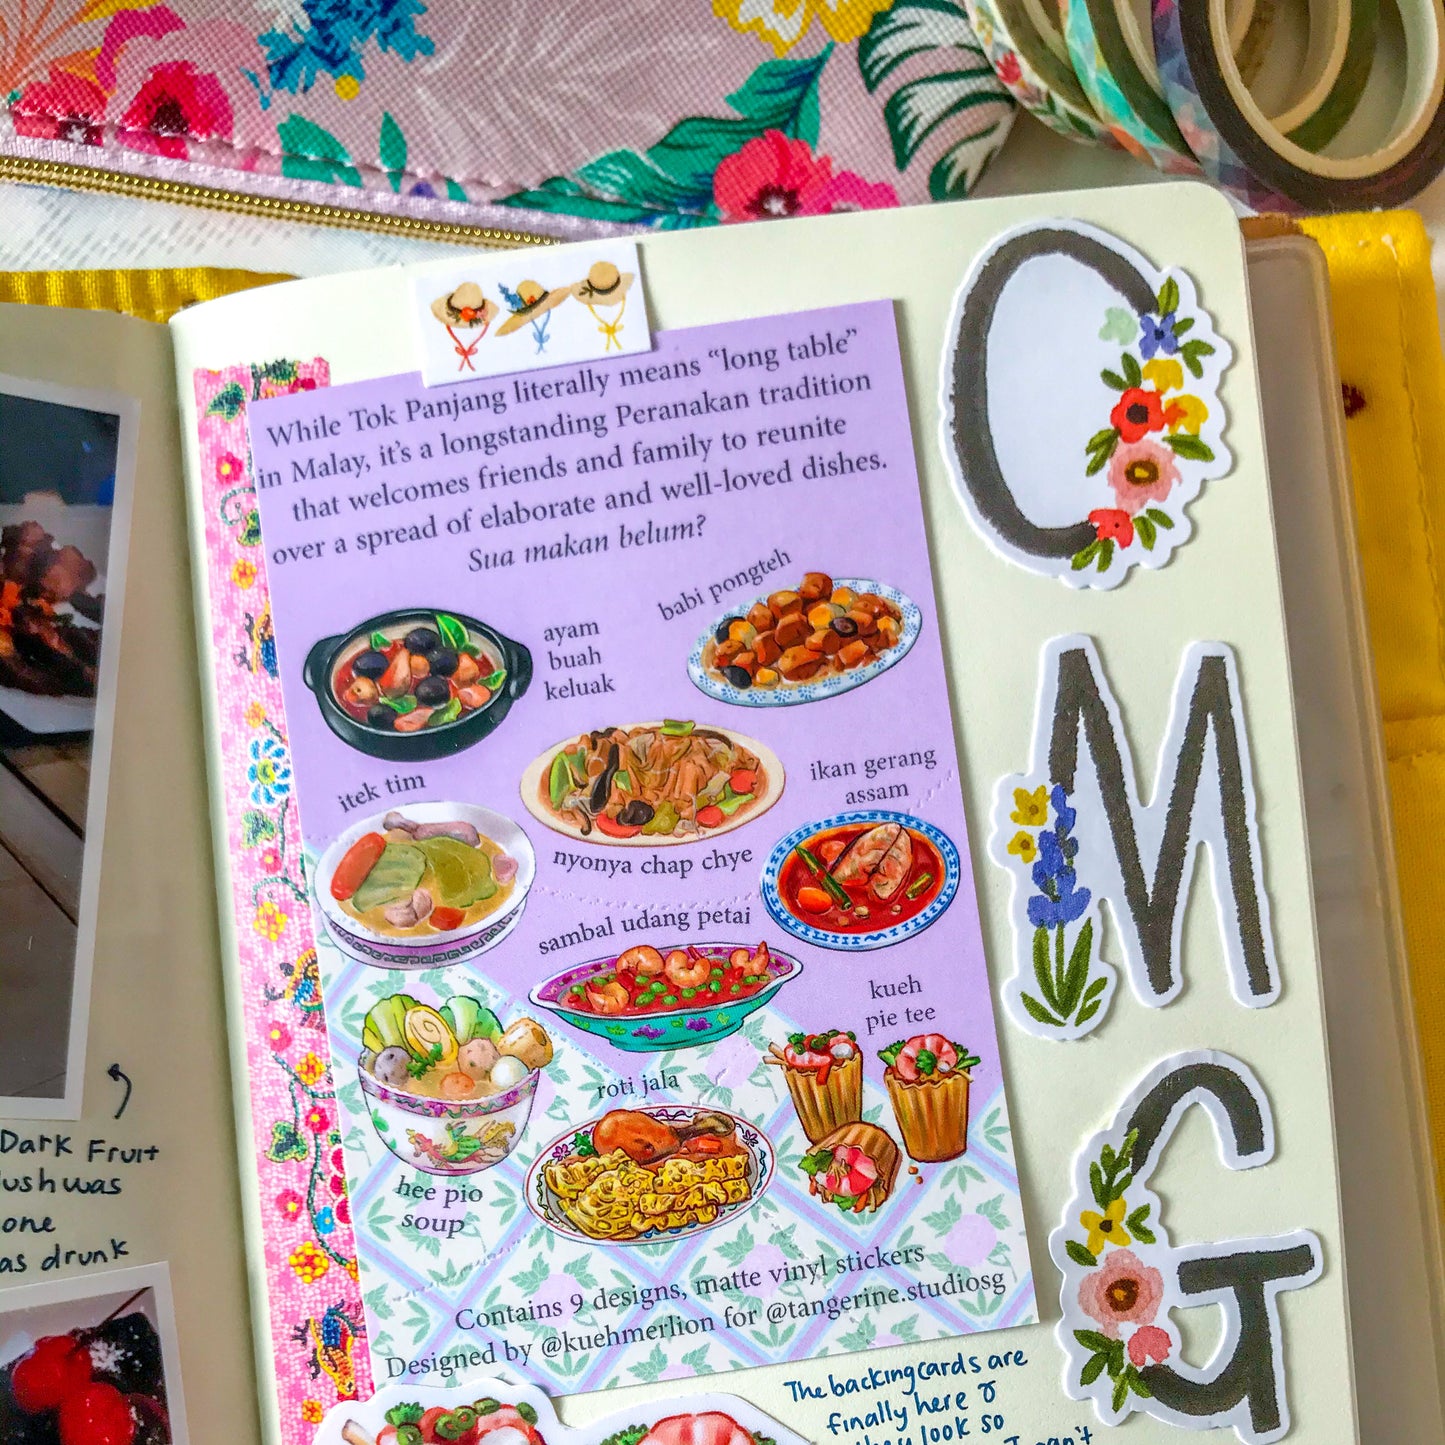 While Tok Panjang literally means “long table”
in Malay, it’s a longstanding Peranakan tradition
that welcomes friends and family to reunite
over a spread of elaborate and well-loved dishes.
Sua makan belum?
babi pongteh
ayam
buah
keluak
itek tim
ikan gerang
assam
nyonya chap chye
sambal udang petai
kueh
pie tee
roti jala
hee pio
soup
Contains 9 designs, matte vinyl stickers
Designed by @kuehmerlion for @tangerine.studiosg
O
M
G
Dark Fruit
was
one
as drunk
The backing cards are
finally here &
they look so
I can't